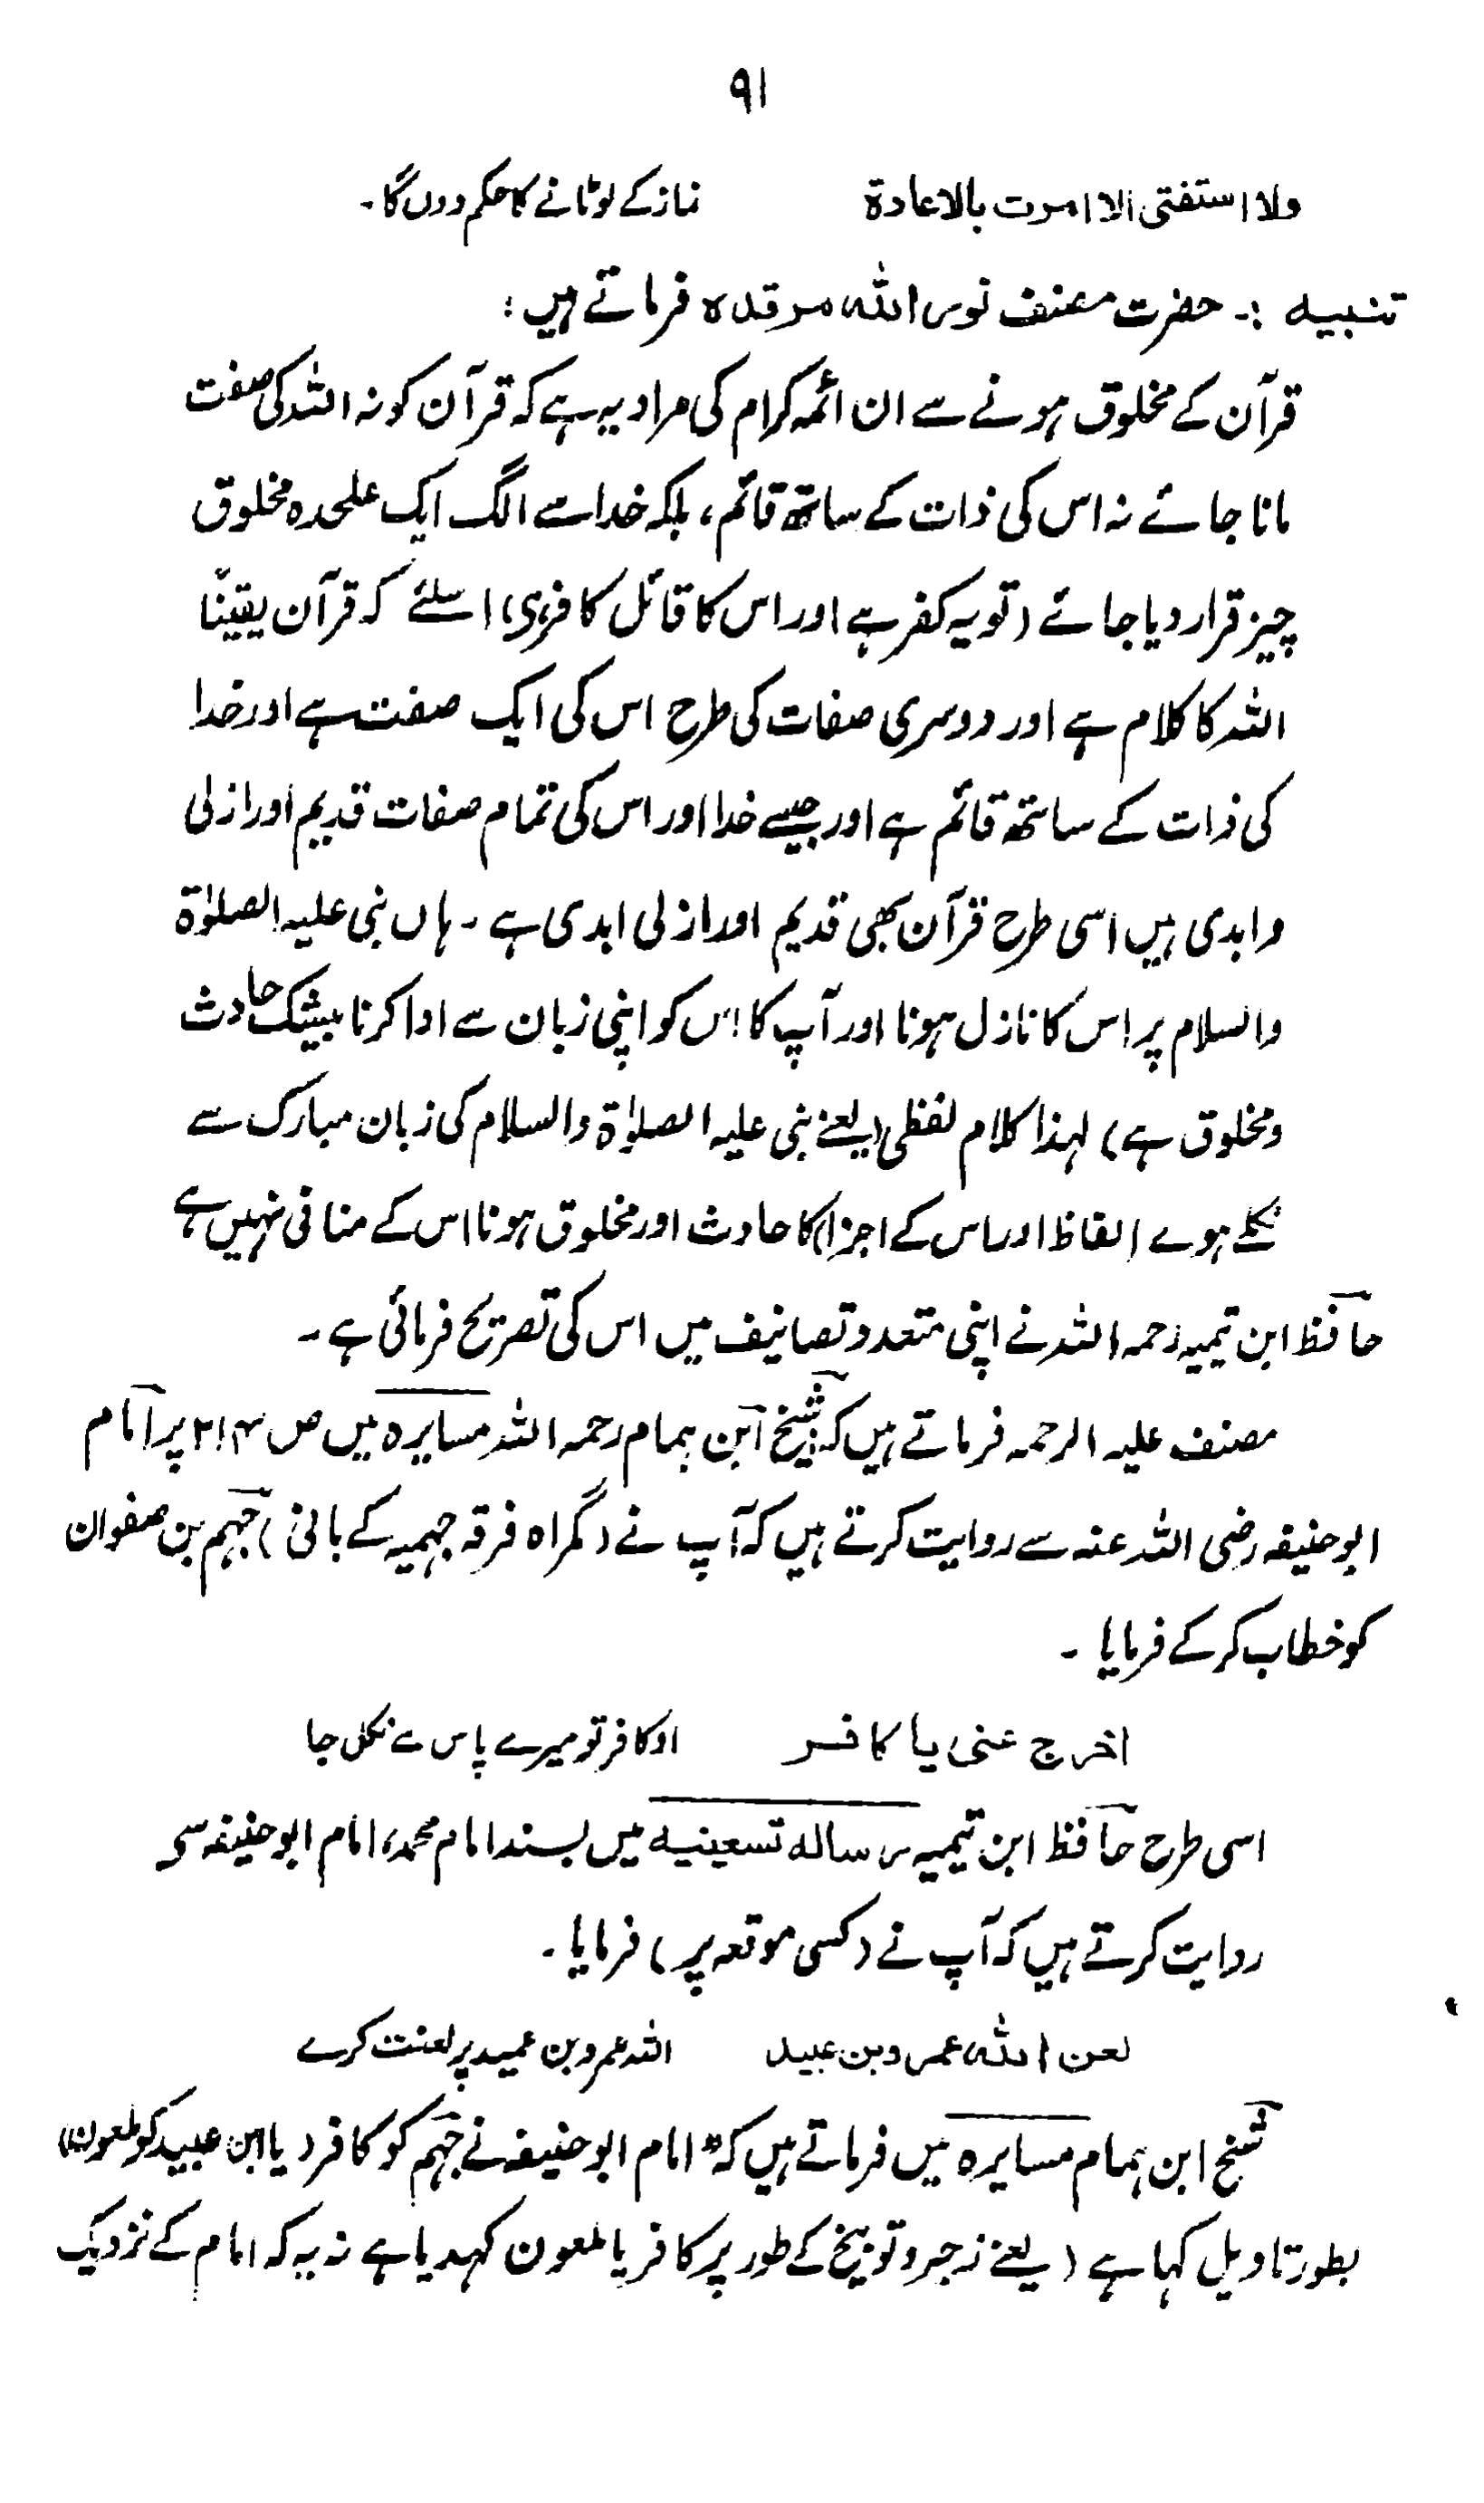 ۹۱
ولا استفتی الا امرت بالاعادة نماز کے لوٹانے کا حکم دوں گا۔
تنبیہ :۔ حضرت مصنف نور اللہ مرقدہ فرماتے ہیں :
قرآن کے مخلوق ہونے سے ان ائمہ کرام کی مراد یہ ہے کہ قرآن کو نہ اللہ کی صفت
مانا جائے نہ اس کی ذات کے ساتھ قائم، بلکہ خدا سے الگ ایک علٰحدہ مخلوق
چیز قرار دیا جائے (تو یہ کفر ہے اور اس کا قائل کافر ہی) اسلئے کہ قرآن یقینًا
اللہ کا کلام ہے اور دوسری صفات کی طرح اس کی ایک صفت ہے اور خدا
کی ذات کے ساتھ قائم ہے اور جیسے خدا اور اس کی تمام صفات قدیم اور ازلی
و ابدی ہیں اسی طرح قرآن بھی قدیم اور ازلی ابدی ہے ۔ ہاں نبی علیہ الصلوٰة
والسلام پر اس کا نازل ہونا اور آپ کا اس کو اپنی زبان سے ادا کرنا بیشک حادث
و مخلوق ہے) لہذا کلام لفظی (یعنے نبی علیہ الصلوٰة والسلام کی زبان مبارک سے
نکلے ہوے الفاظ اور اس کے اجزا) کا حادث اور مخلوق ہونا اس کے منافی نہیں ہے
حافظ ابن تیمیہ رحمہ اللہ نے اپنی متعدد تصانیف میں اس کی تصریح فرمائی ہے ۔
مصنف علیہ الرحمہ فرماتے ہیں کہ: شیخ ابن ہمام رحمہ اللہ مسایرہ میں ص ۲۱۴ پر امام
ابوحنیفہ رضی اللہ عنہ سے روایت کرتے ہیں کہ آپ نے (گمراہ فرقہ جہمیہ کے بانی) جہم بن صفوان
کو خطاب کر کے فرمایا ۔
اخرج عنی یا کافر او کافر تو میرے پاس سے نکل جا
اسی طرح حافظ ابن تیمیہ رسالہ تسعینیہ میں بسند امام محمد، امام ابوحنیفہ سی
روایت کرتے ہیں کہ آپ نے (کسی موقعہ پر) فرمایا ۔
لعن اللہ عمرو بن عبید اللہ عمرو بن عبید پر لعنت کرے
شیخ ابن ہمام مسایرہ میں فرماتے ہیں کہ "امام ابوحنیفہ نے جہم کو کافر (یا ابن عبید کو ملعون)
بطور تاویل کہا ہے (یعنے زجر و توبیخ کے طور پر کافر یا ملعون کہدیا ہے نہ یہ کہ امام کے نزدیک